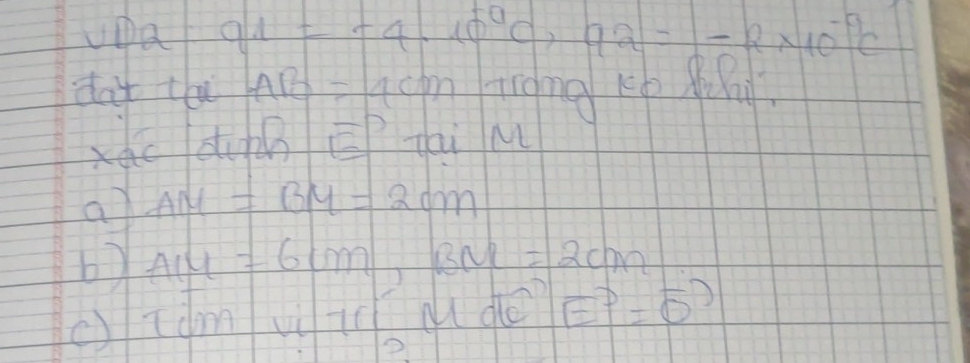 VDa q1 = +4.10⁻⁹C, q2 = -2×10⁻⁹C
đặt tại AB = 4cm trong kp khí.
xác định E⃗ tại M
a) AM = BM = 2cm
b) AM = 6cm, BM = 2cm
c) Tìm vị trí M để E⃗ = 0⃗
?